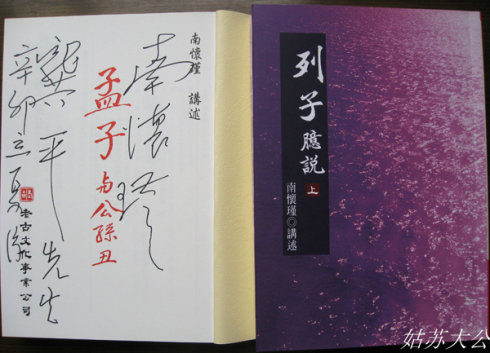 南懷瑾 講述
南懷瑾
孟子
与公孫丑
平先生
辛卯立夏
老古文化事業公司
列子臆説
上
南懷瑾◎講述
姑苏大公